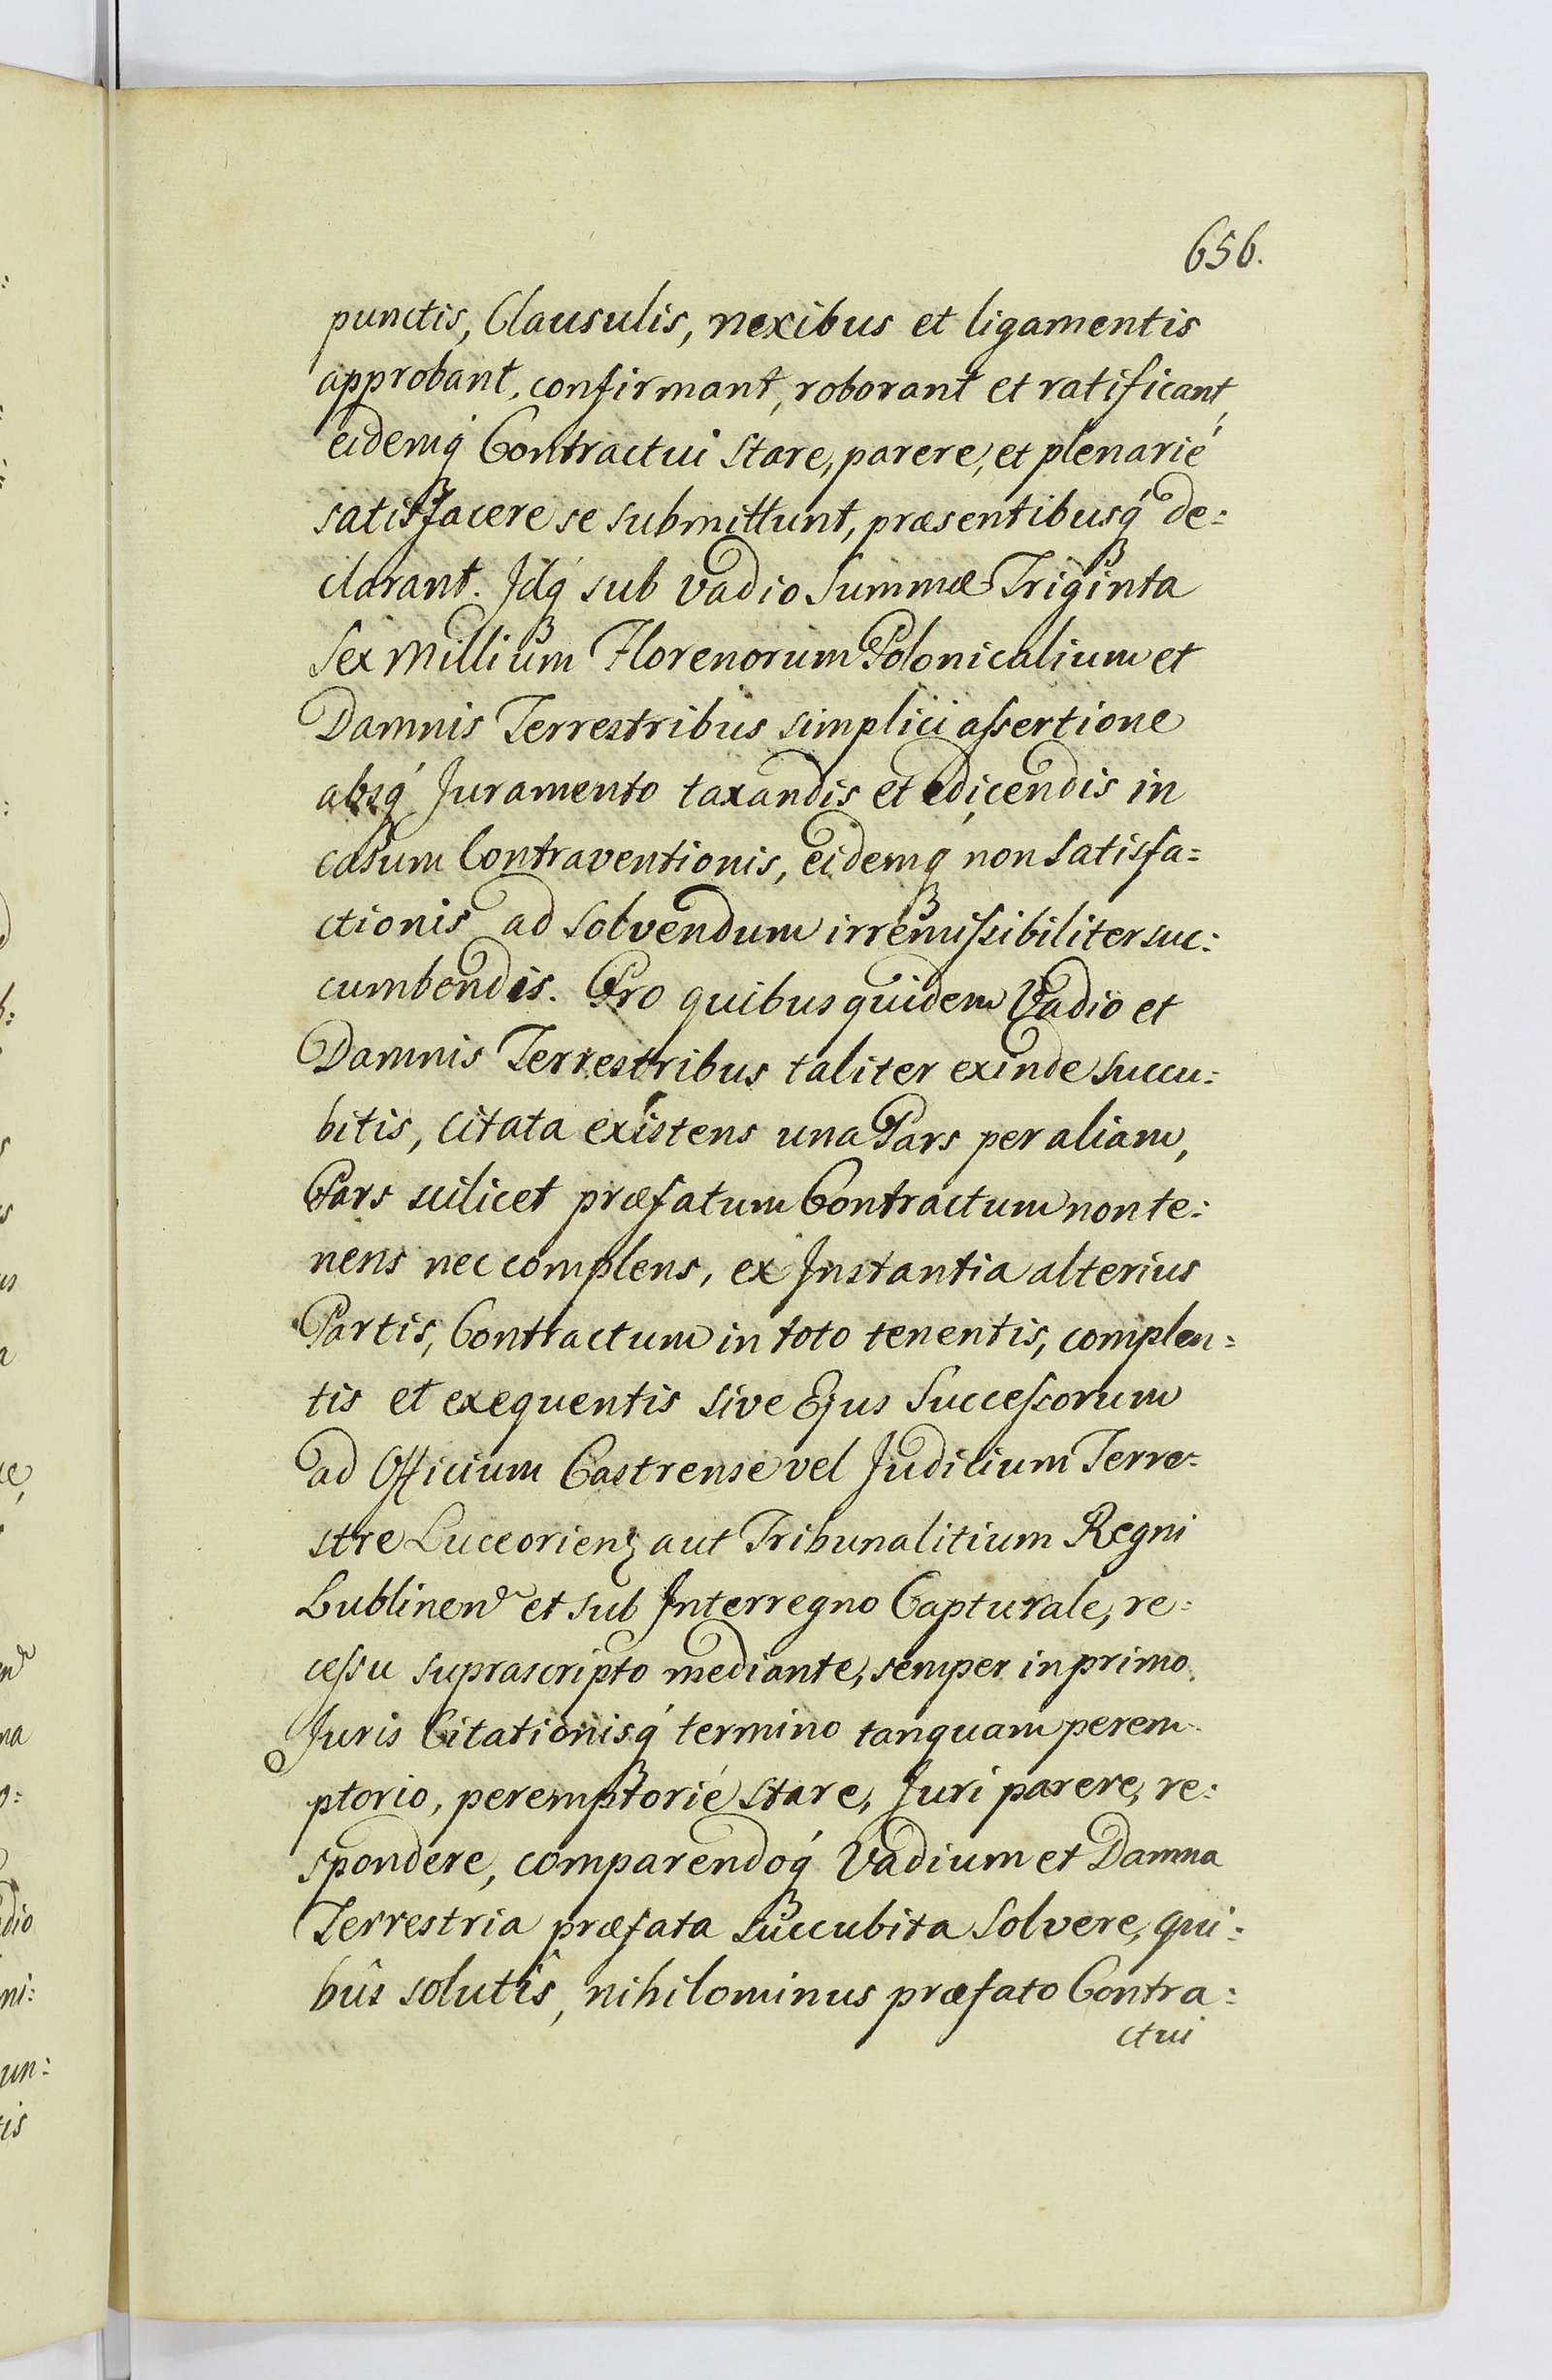 656.
punctis, Clausulis, nexibus et ligamentis
approbant, confirmant, roborant et ratificant,
eidemq́ Contractui stare, parere, et plenarié
satisfacere se submittunt, præsentibusq́ de=
clarant. Jdq́ sub vadio Summæ Triginta
Sex Millium Florenorum Polonicalium et
Damnis Terrestribus simplici aſsertione
absq́ Juramento taxandis et edicendis in
casum Contraventionis, eidemq́ non satisfa=
ctionis ad solvendum irremiſsibiliter suc=
cumbendis. Pro quibus quidem Vadio et
Damnis Terrestribus taliter exinde succu=
bitis, citata existens una Pars per aliam,
Pars scilicet præfatum Contractum non te=
nens nec complens, ex Jnstantia alterius
Partis, Contractum in toto tenentis, complen=
tis et exequentis sive Ejus Succeſsorum
ad Officium Castrense vel Judicium Terre=
stre Luceorienʒ aut Tribunalitium Regni
Lublinenᵉ et sub Jnterregno Capturale, re=
ceſsu suprascripto mediante, semper in primo
Juris Citationisq́ termino tanquam perem=
ptorio, peremptorié stare, Juri parere, re=
spondere, comparendoq́ Vadium et Damna
Terrestria præfata succubita solvere, qui=
bûs solutîs, nihilominus præfato Contra=
ctui